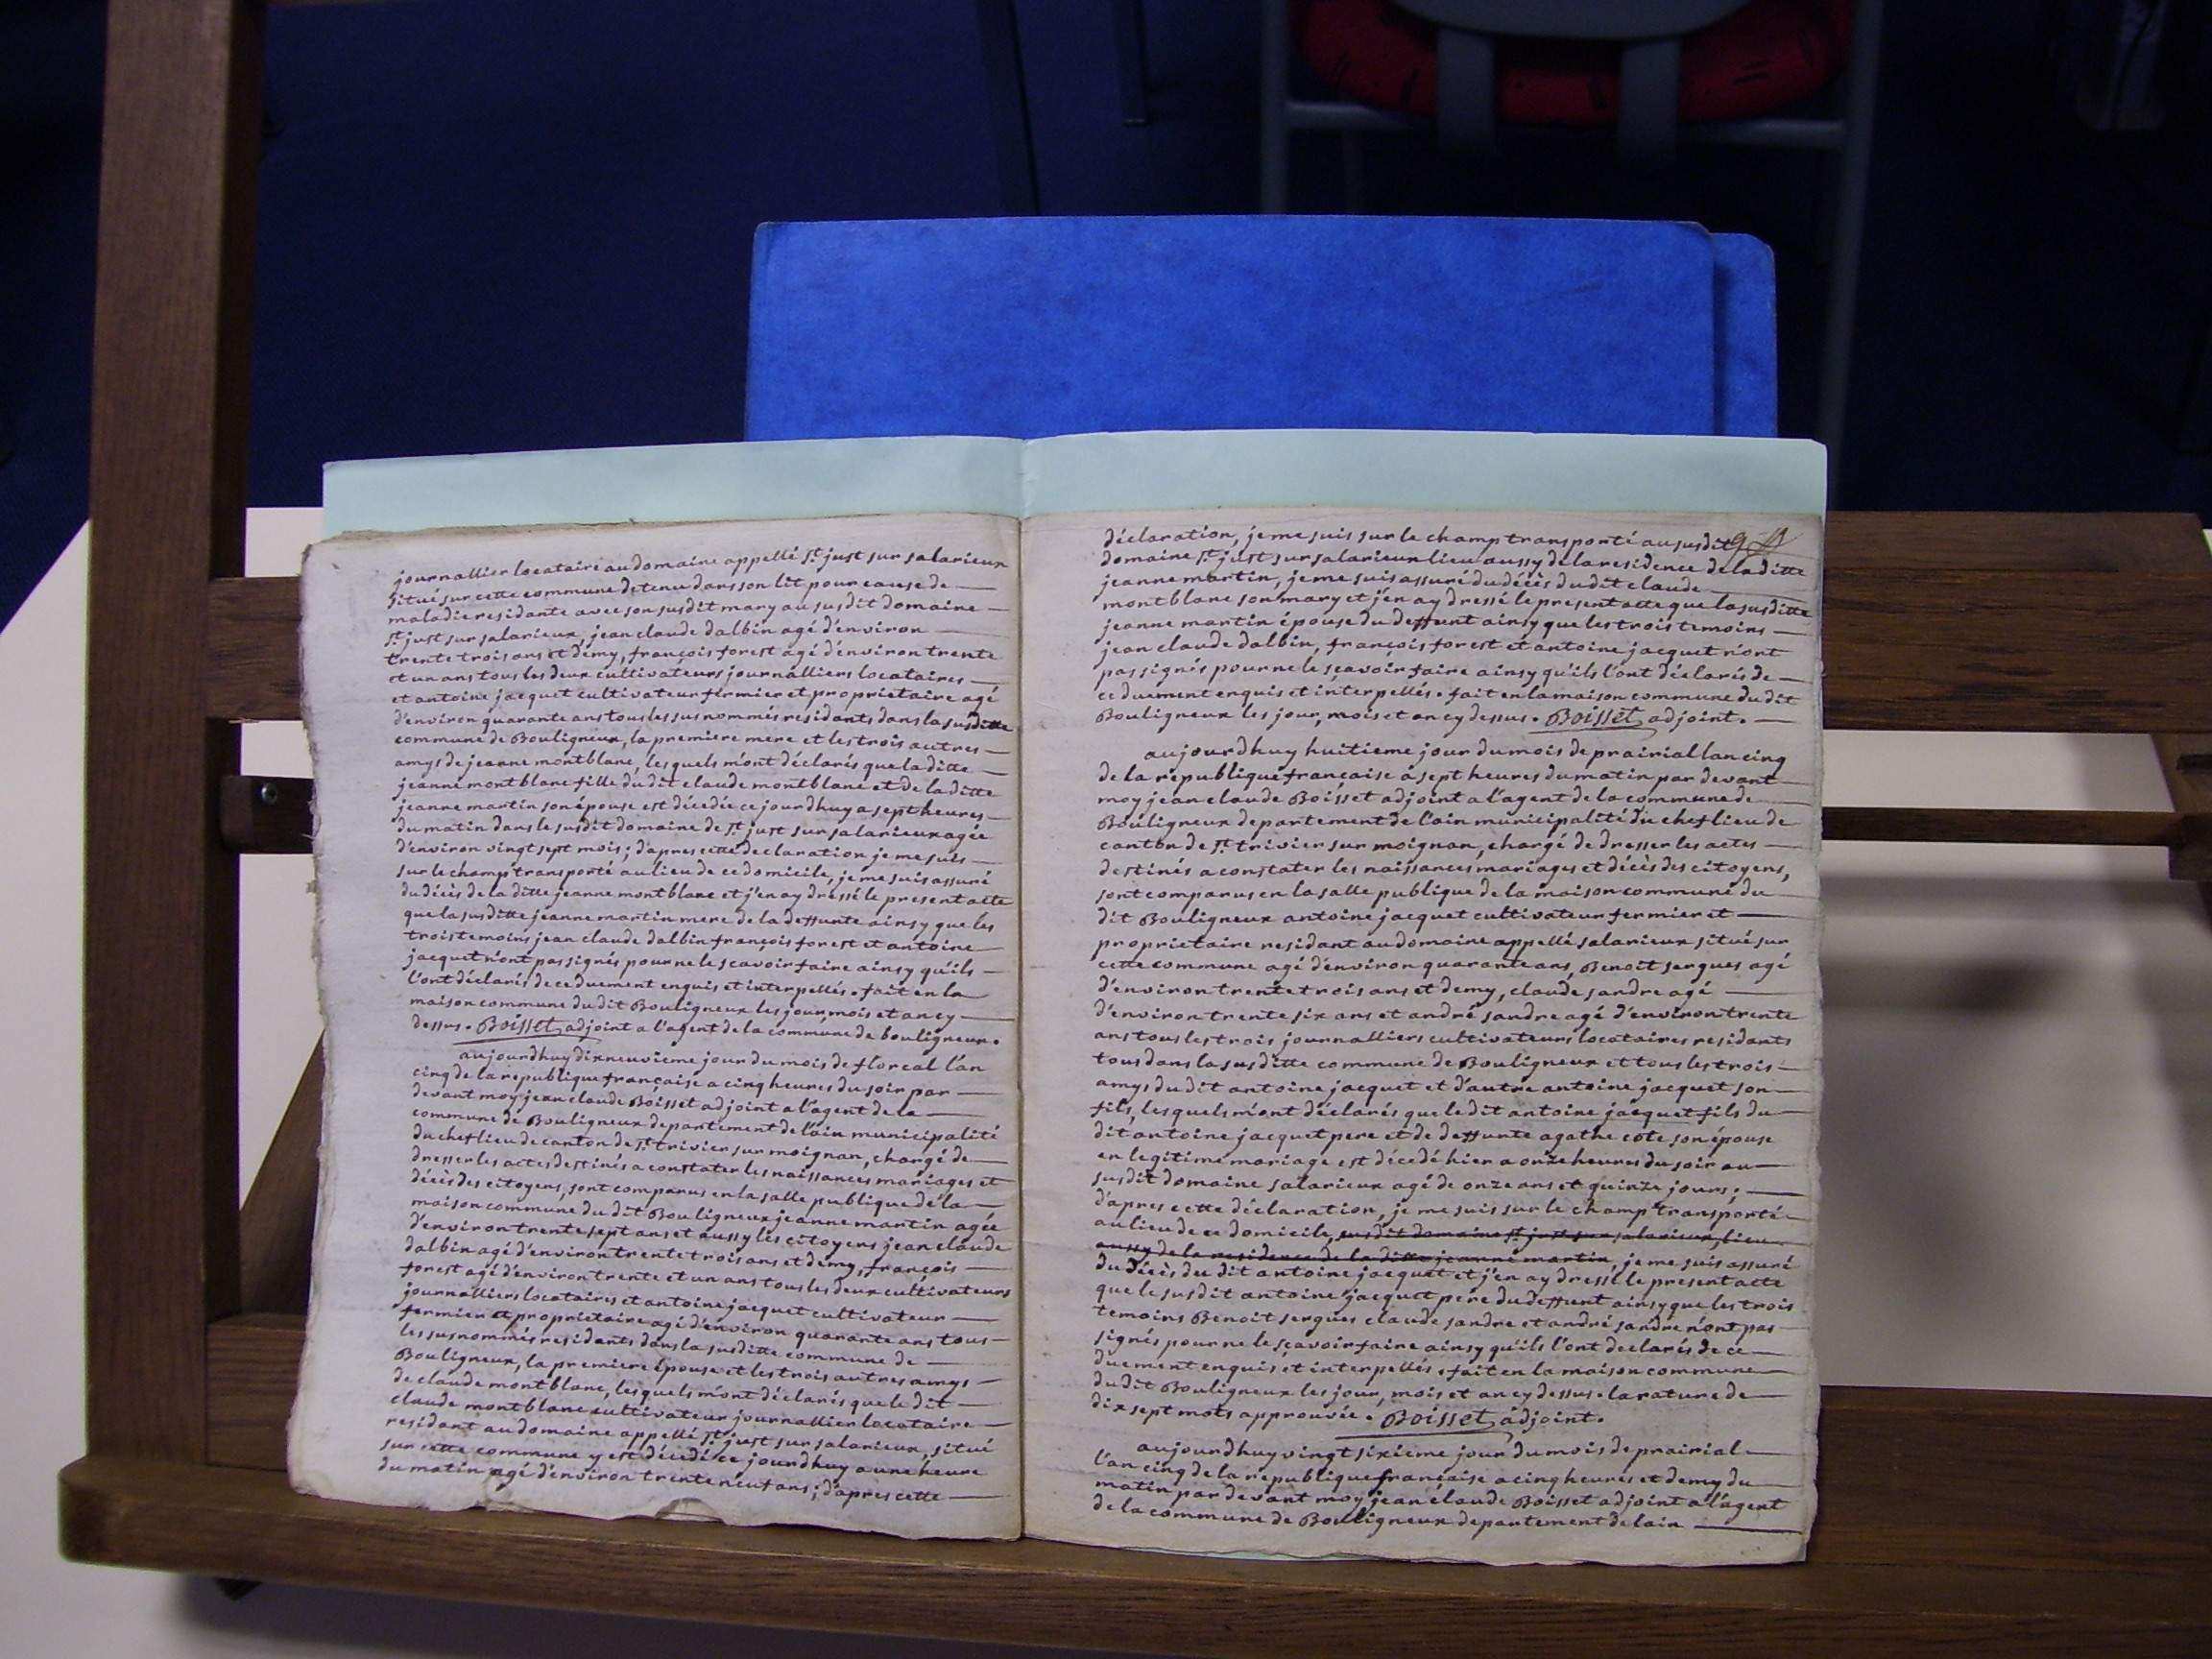 journallier locataire au domaine appellé st. just sur salarieux
situé sur cette commune detenu dans son lit pour cause de
maladie residante avec son susdit mary au susdit domaine
st. just sur salarieux, jean claude dalbin agé d'environ
trente trois ans et démy, françois forest agé d'environ trente
et un ans tous les deux cultivateurs journalliers locataires
et antoine jacquet cultivateur fermier et proprietaire agé
d'environ quarante ans tous les susnommés residants dans la susditte
commune de Bouligneux, la premiere mere et les trois autres
amys de jeanne montblanc, lesquels m'ont déclarés que la ditte
jeanne montblanc fille du dit claude montblanc et de la ditte
jeanne martin son épouse est décédée ce jourdhuy a sept heures
du matin dans le susdit domaine de st. just sur salarieux agée
d'environ vingt sept mois; d'apres cette declaration je me suis
sur le champ transporté au lieu de ce domicile, je me suis assuré
du décès de la ditte jeanne montblanc et j'en ay dressé le present acte
que la susditte jeanne martin mere de la deffunte ainsy que les
trois temoins jean claude dalbin françois forest et antoine
jacquet n'ont pas signés pour ne le scavoir faire ainsy qu'ils
l'ont déclarés de ce duement enquis et interpellés. fait en la
maison commune du dit Bouligneux les jour mois et an cy
dessus. Boisset adjoint a l'agent de la commune de bouligneux.
aujourdhuy dixneuvieme jour du mois de floreal l'an
cinq de la republique française a cinq heures du soir par
devant moy jean claude Boisset adjoint a l'agent de la
commune de Bouligneux departement de l'ain municipalité
du chef lieu de canton de st. trivier sur moignan, chargé de
dresser les actes destinés a constater les naissances mariages et
décès des citoyens, sont comparus en la salle publique de la
maison commune du dit Bouligneux jeanne martin agée
d'environ trente sept ans et aussy les citoyens jean claude
dalbin agé d'environ trente trois ans et demy, françois
forest agé d'environ trente et un ans tous les deux cultivateurs
journalliers locataires et antoine jacquet cultivateur
fermier et proprietaire agé d'environ quarante ans tous
les susnommés residants dans la susditte commune de
Bouligneux, la premiere épouse et les trois autres amys
de claude montblanc, lesquels m'ont déclarés que le dit
claude montblanc cultivateur journallier locataire
residant au domaine appellé st. just sur salarieux, situé
sur cette commune y est décédé ce jourdhuy a une heure
du matin agé d'environ trente neuf ans; d'apres cette
déclaration, je me suis sur le champ transporté au susdit
domaine st. just sur salarieux lieu aussy de la residence de la ditte
jeanne martin, je me suis assuré du décès du dit claude
montblanc son mary et j'en ay dressé le present acte que la susditte
jeanne martin épouse du deffunt ainsy que les trois temoins
jean claude dalbin, françois forest et antoine jacquet n'ont
pas signés pour ne le sçavoir faire ainsy qu'ils l'ont déclarés de
ce duement enquis et interpellés. fait en la maison commune du dit
Bouligneux les jour, mois et an cy dessus. Boisset adjoint.
aujourdhuy huitieme jour du mois de prairial lan cinq
de la republique française à sept heures du matin par devant
moy jean claude Boisset adjoint a l'agent de la commune de
Bouligneux departement de l'ain municipalité du chef lieu de
canton de st. trivier sur moignan, chargé de dresser les actes
destinés a constater les naissances mariages et décès des citoyens,
sont comparus en la salle publique de la maison commune du
dit Bouligneux antoine jacquet cultivateur fermier et
proprietaire residant au domaine appellé salarieux situé sur
cette commune agé d'environ quarante ans, Benoit sergues agé
d'environ trente trois ans et demy, claude sandre agé
d'environ trente six ans et andré sandre agé d'environ trente
ans tous les trois journalliers cultivateurs locataires residants
tous dans la susditte commune de Bouligneux et tous les trois
amys du dit antoine jacquet et d'autre antoine jacquet son
fils, lesquels m'ont déclarés que le dit antoine jacquet fils du
dit antoine jacquet pere et de deffunte agathe cote son épouse
en legitime mariage est décedé hier a onze heures du soir au
susdit domaine salarieux agé de onze ans et quinze jours;
d'apres cette déclaration, je me suis sur le champ transporté
au lieu de ce domicile, susdit domaine st. just sur salarieux, lieu
aussy de la residence de la ditte jeanne martin, je me suis assuré
du décès du dit antoine jacquet et j'en ay dressé le present acte
que le susdit antoine jacquet pere du deffunt ainsy que les trois
temoins Benoit sergues claude sandre et andré sandre n'ont pas
signés pour ne le sçavoir faire ainsy qu'ils l'ont declarés de ce
duement enquis et interpellés. fait en la maison commune
du dit Bouligneux les jour, mois et an cy dessus. la rature de
dix sept mots approuvée. Boisset adjoint.
aujourdhuy vingt sixieme jour du mois de prairial
l'an cinq de la republique française a cinq heures et demy du
matin par devant moy jean claude Boisset adjoint a l'agent
de la commune de Bouligneux departement de lain